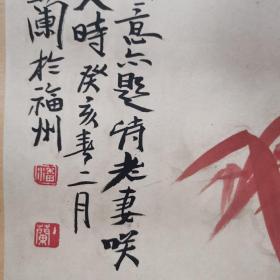 意亦题诗老妻咲
大时癸亥春二月
兰於福州